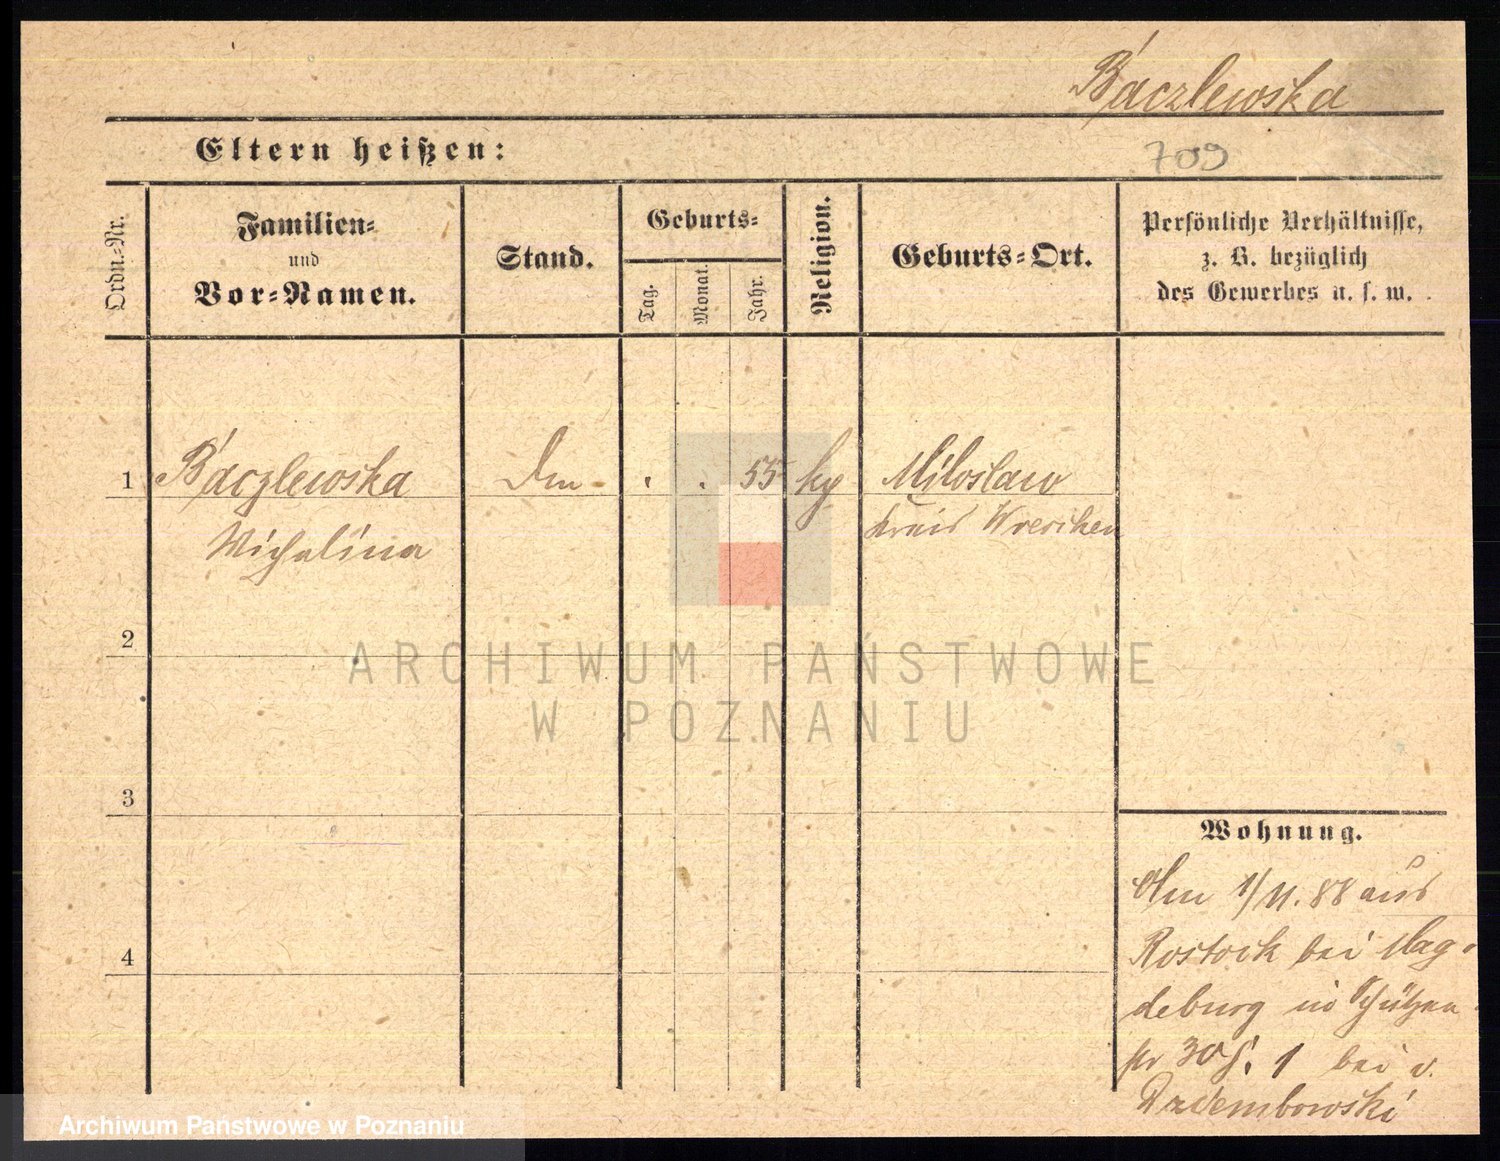 Báczlewska
Eltern heißen:
709
Ordn.-Nr.
Familien-
und
Vor-Namen.
Stand.
Geburts-
Tag.
Monat.
Jahr.
Religion.
Geburts-Ort.
Persönliche Verhältnisse,
z. B. bezüglich
des Gewerbes u. s. w.
1
Báczlewska
55
Miloslaw
Kreis Wreschen
Michalina
2
ARCHIWUM PAŃSTWOWE
W POZNANIU
3
Wohnung.
Am 1/11.88 aus
4
Rostock bei Mag-
deburg in Schützen-
str 30 1 bei v.
Dziembowski
Archiwum Państwowe w Poznaniu